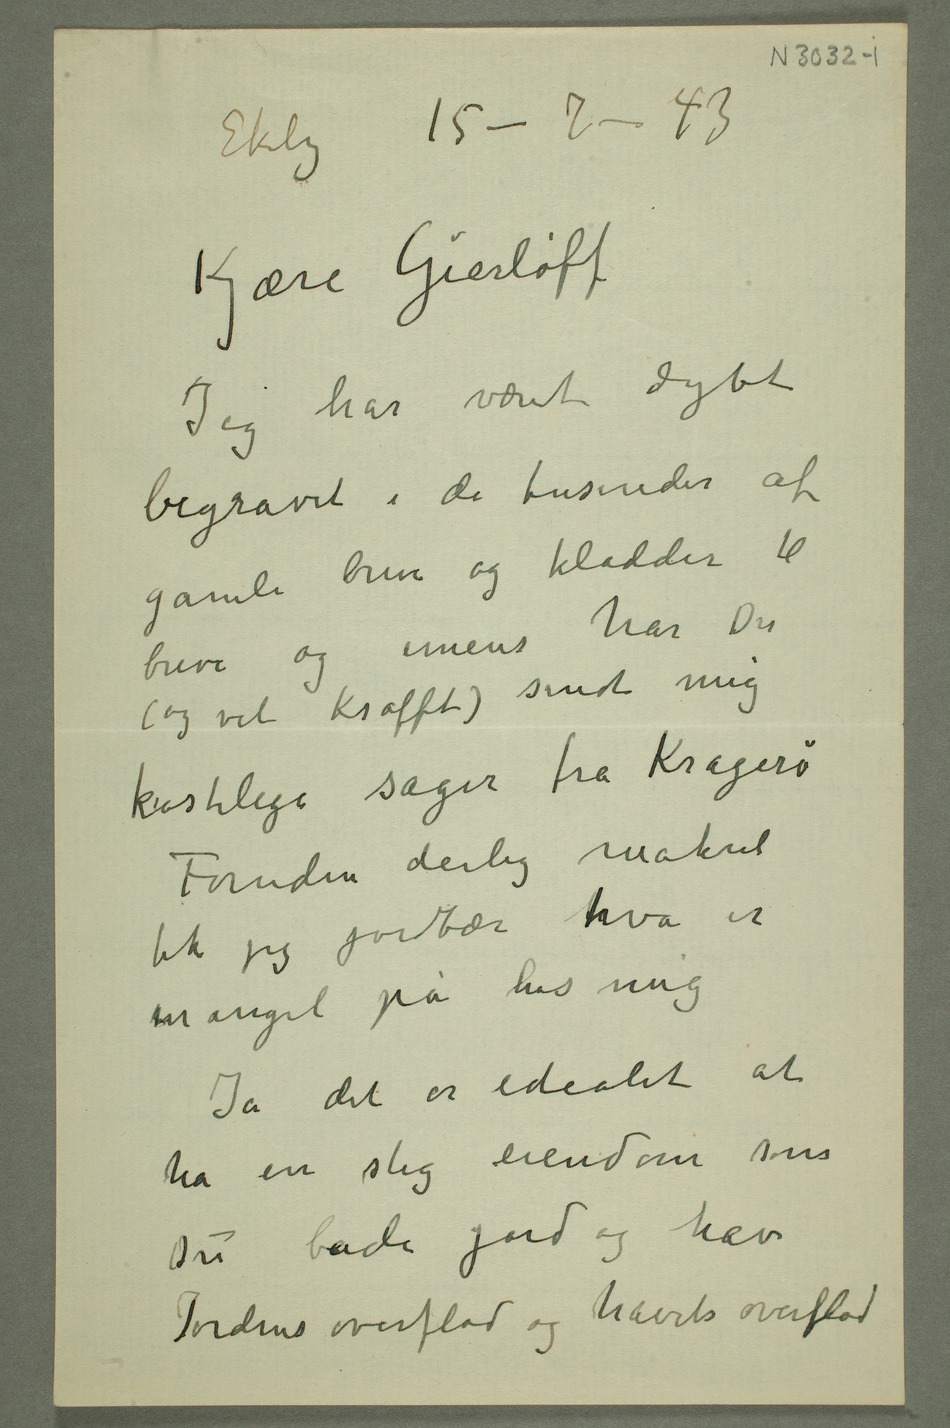 N 3032-i
Ekely 15 – 7 – 43
Kjære Gierløff
Jeg har været dybt
begravet i de tusinder af
gamle breve og kladder til
breve og imens har Du
(og vel Krafft) sendt mig
kostelige sager fra Kragerø
Foruden deilig makrel
fik jeg jordbær hva er
mangel på hos mig
Ja det er idealet at
ha en slig eiendom som
Du både jord og hav
Jordens overflod og havets overflod